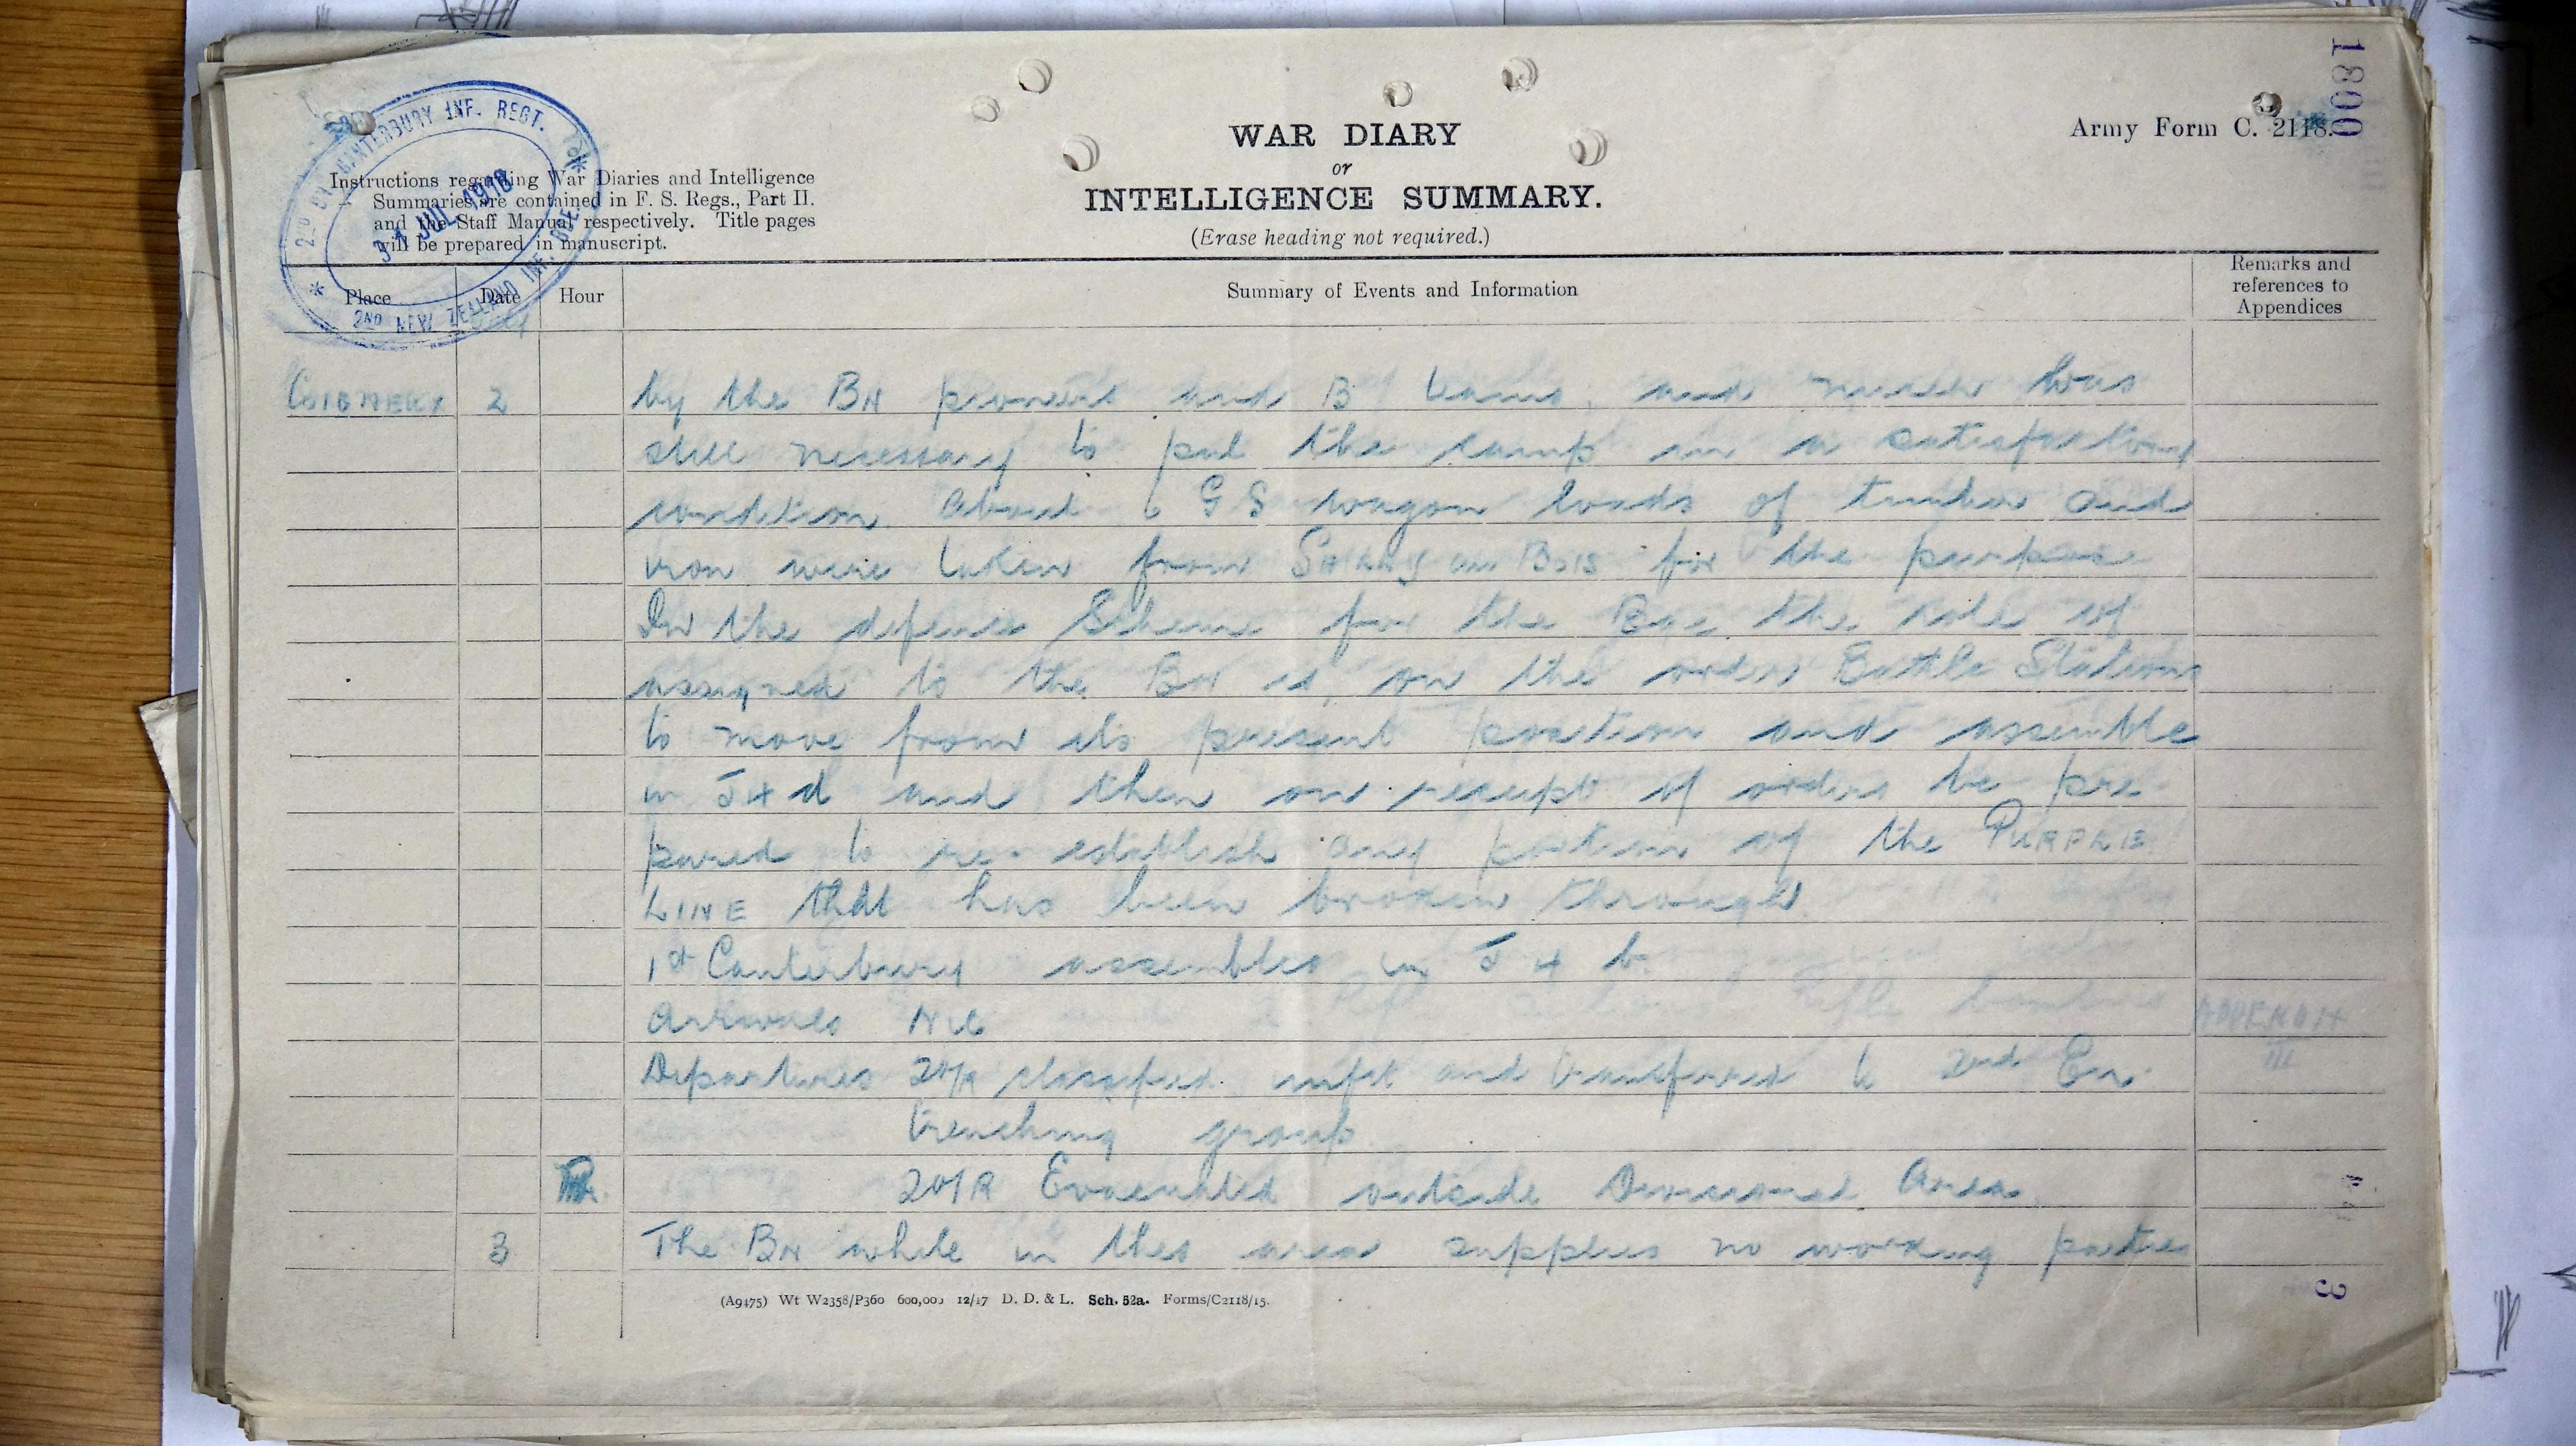 1800
Army Form C. 2118.
WAR DIARY
or
INTELLIGENCE SUMMARY.
(Erase heading not required.)
Instructions regarding War Diaries and Intelligence
Summaries are contained in F. S. Regs., Part II.
and the Staff Manual respectively. Title pages
will be prepared in manuscript.
2ND BN. CANTERBURY INF. REGT.
31 JUL 1918
2ND NEW ZEALAND INF. BDE.
Place Date Hour Summary of Events and Information Remarks and references to Appendices
COIGNEUX 2 by the BN pioneers and B teams, and much was
still necessary to put the camp in a satisfactory
condition. About 6 GS wagon loads of timber and
iron were taken from SAILLY au BOIS for the purpose
In the defence Scheme for the Bde the role of
assigned to the BN is, on the order Battle Stations
to move from its present position and assemble
in J 4 d and then on receipt of orders be pre-
pared to re-establish any portion of the PURPLE
LINE that has been broken through
1st Canterbury assembles in J 4 b.
Arrivals Nil
APPENDIX
III
Departures 2O/R classified unfit and transferred to 2nd En-
trenching group
2O/R Evacuated outside Divisional Area
3 The BN while in this area supplies no working parties
(A9475) Wt W2358/P360 600,000 12/17 D. D. & L. Sch. 52a. Forms/C2118/15.
3